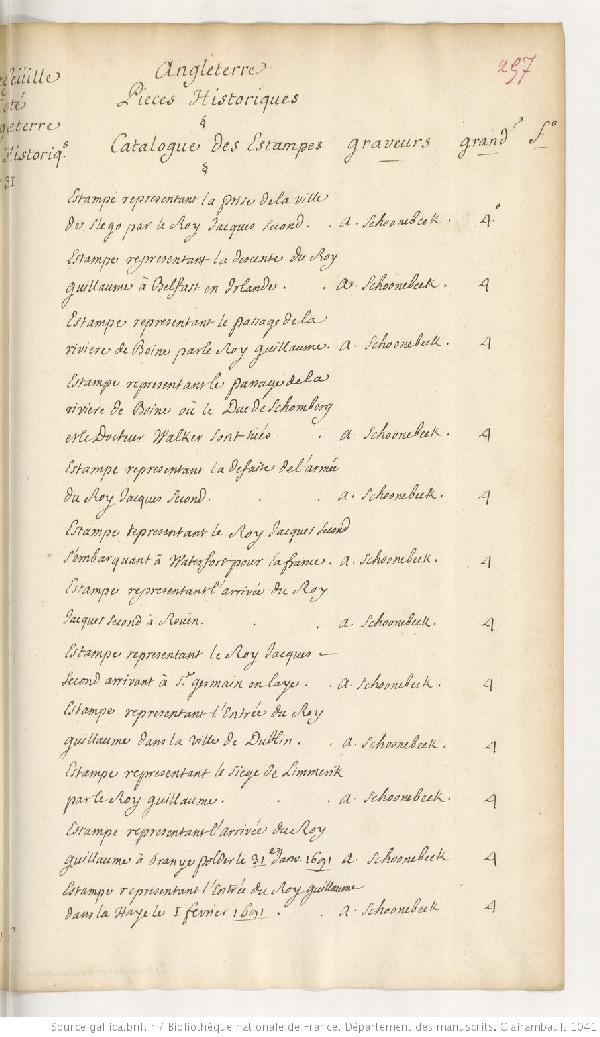 Angleterre
297
Pieces Historiques
§
Catalogue des Estampes graveurs grand.r f.o
§
Estampe representant la prise de la ville
de Slego par le Roy Jacques Second. . A. Schoonebeek. 4.o
Estampe representant la descente du Roy
guillaume à Belfast en Irlande. . A. Schoonebeek. 4
Estampe representant le passage de la
riviere de Boine par le Roy guillaume. A. Schoonebeek. 4
Estampe representant le passage de la
riviere de Boine où le Duc de Schomberg
et le Docteur Walker sont tués. . A Schoonebeek. 4
Estampe representant la defaite de l'armée
du Roy Jacques Second. . . A. Schoonebeek. 4
Estampe representant le Roy Jacques Second
s'embarquant à Waterfort pour la france. A. Schoonebeek. 4
Estampe representant l'arrivée du Roy
Jacques Second à Roüen. . . A. Schoonebeek. 4
Estampe representant le Roy Jacques –
Second arrivant à S.t germain en laye. . A. Schoonebeek. 4
Estampe representant l'Entrée du Roy
guillaume dans la ville de Dublin. . A. Schoonebeek. 4
Estampe representant le siege de Limmerik
par le Roy guillaume. . . A. Schoonebeek. 4
Estampe representant l'arrivée du Roy
guillaume à Oranye polder le 31.e Janv. 1691 A. Schoonebeek 4
Estampe representant l'Entrée du Roy guillaume
dans la Haye le 1 fevrier 1691. . A. Schoonebeek 4
Source gallica.bnf.fr / Bibliothèque nationale de France. Département des manuscrits. Clairambault 1041